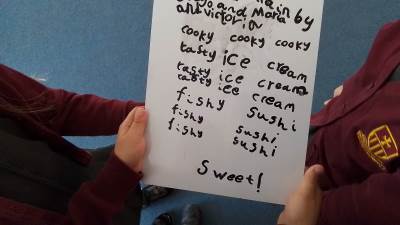 by
and Mara
and Victoria
cooky cooky cooky
tasty ice cream
tasty ice cream
tasty ice cream
fishy sushi
fishy sushi
fishy sushi
Sweet!